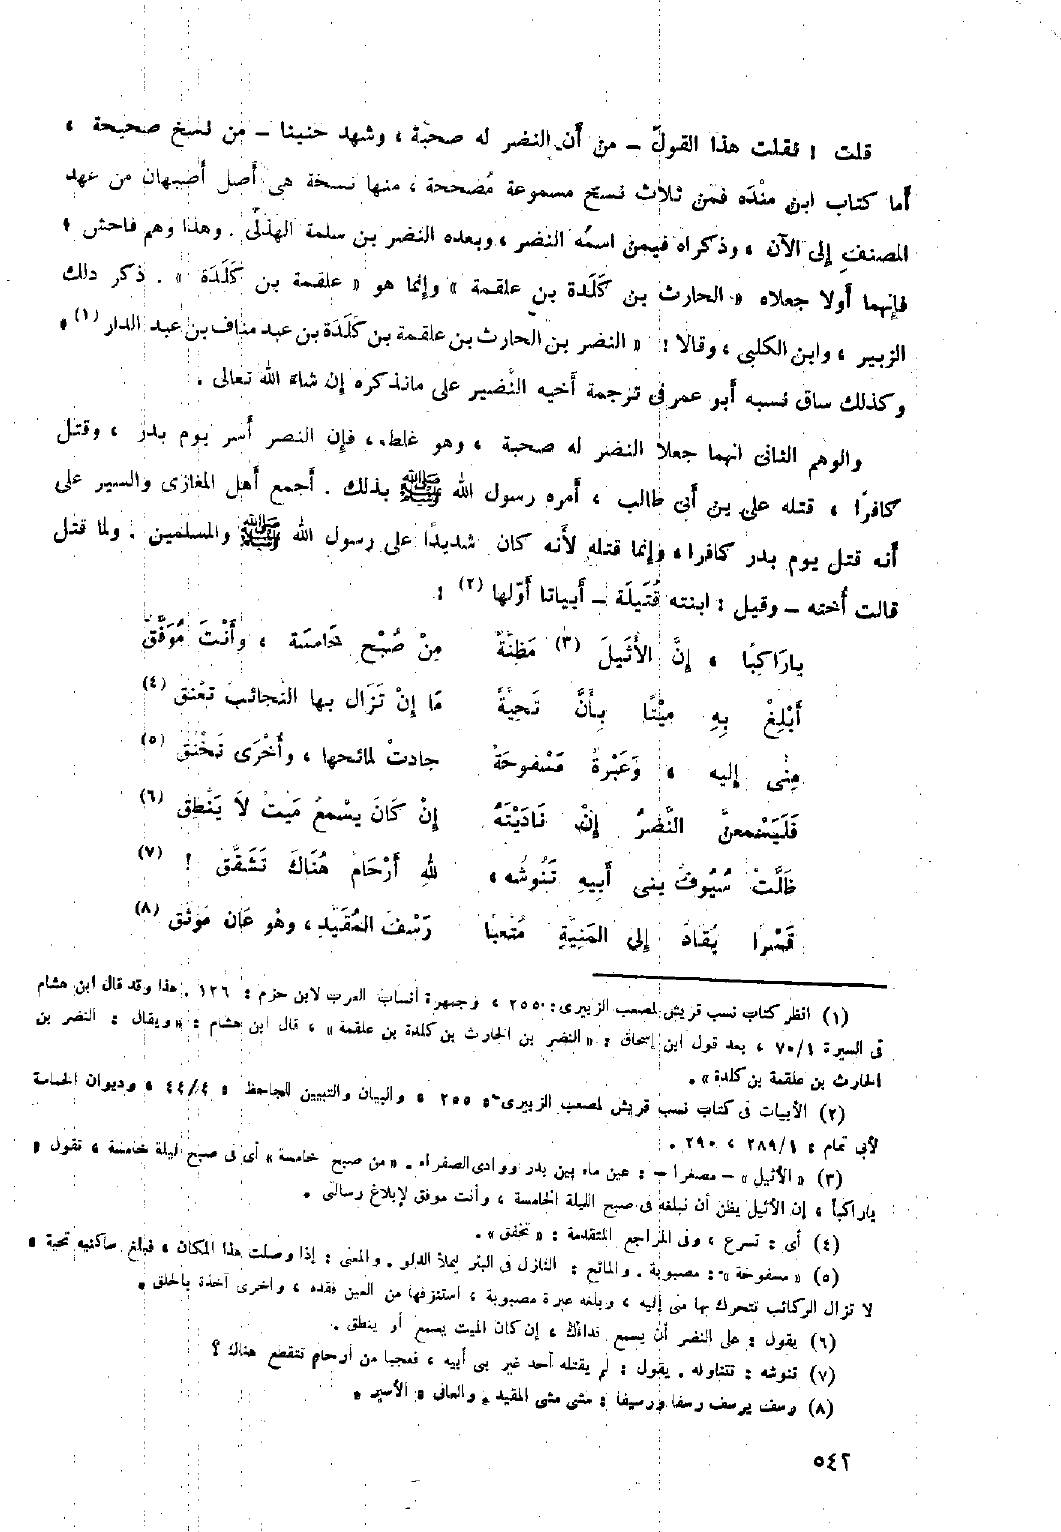 قلت : نقلت هذا القول – من أن النضر له صحبة ، وشهد حنينا – من نسخ صحيحة ،
أما كتاب ابن منْده فمن ثلاث نسخ مسموعة مُصححة ، منها نسخة هى أصل أصبهان من عهد
المصنف إلى الآن ، وذكراه فيمن اسمُه النضر ، وبعده النضر بن سلمة الهذلّى . وهذا وهم فاحش ،
فإنهما أولا جعلاه « الحارث بن كَلَدة بن علقمة » وإنما هو « علقمة بن كَلَدَة » . ذكر ذلك
الزبير ، وابن الكلبى ، وقالا : « النضر بن الحارث بن علقمة بن كَلَدَة بن عبد مناف بن عبد الدار (١) »
وكذلك ساق نسبه أبو عمر فى ترجمة أخيه النُّضير على ما نذكره إن شاء الله تعالى .
والوهم الثانى أنهما جعلا النضر له صحبة ، وهو غلط ، فإن النضر أسر يوم بدر ، وقتل
كافرًا ، قتله على بن أبى طالب ، أمره رسول الله ﷺ بذلك . أجمع أهل المغازى والسير على
أنه قتل يوم بدر كافرا ، وإنما قتله لأنه كان شديدًا على رسول الله ﷺ والمسلمين . ولما قتل
قالت أُخته – وقيل : ابنته قُتَيلَة – أبياتا أوّلها (٢) :
يارَاكِبًا ، إنَّ الأُثَيلَ (٣) مَظِنَّةٌ مِنْ صُبْحِ خَامسَة ، وأَنْتَ مُوَفَّقُ
أَبْلِغْ بِهِ مَيْتًا بِأَنَّ تَحِيَّةً مَا إنْ تَزَال بها النَّجائبُ تُعْنِق (٤)
مِنِّى إليه ، وَعَبْرةً مَسْفوحَةً جادتْ لمائحها ، وأُخْرَى تَخْنق (٥)
فَلَيَسْمعنَّ النَّضرُ إنْ نَادَيْتَهُ إنْ كَانَ يسْمعُ مَيت لاَ يَنْطِق (٦)
ظَلَّتْ سُيُوفُ بنى أَبِيهِ تَنُوشُه ، للهِ أَرْحَام هُنَاكَ تَشَقَّق ! (٧)
قَسْرا يُقادُ إلى المَنِيَّةِ مُتْعبًا رَسْفَ المُقَيَّدِ ، وهْو عَان مُوثَق (٨)
(١) انظر كتاب نسب قريش لمصعب الزبيرى : ٢٥٥ ، وجمهرة أنساب العرب لابن حزم : ١٢٦ . هذا وقد قال ابن هشام
فى السيرة ٧٠/١ ، بعد قول ابن إسحاق : « النضر بن الحارث بن كلدة بن علقمة » ، قال ابن هشام : « ويقال : النضر بن
الحارث بن علقمة بن كلدة » .
(٢) الأبيات فى كتاب نسب قريش لمصعب الزبيرى : ٢٥٥ ، والبيان والتبيين للجاحظ : ٤٤/٤ ، وديوان الحماسة
لأبى تمام : ٢٨٩/١ ، ٢٩٠ .
(٣) « الأثيل » – مصغرا – : عين ماء بين بدر ووادى الصفراء . « من صبح خامسة » أى فى صبح ليلة خامسة ، تقول :
ياراكبا ، إن الأثيل يظن أن تبلغه فى صبح الليلة الخامسة ، وأنت موفق لإبلاغ رسالتى .
(٤) أى : تسرع ، وفى المراجع المتقدمة : « تخفق » .
(٥) « مسفوحة » : مصبوبة . والمائح : النازل فى البئر ليملأ الدلو . والمعنى : إذا وصلت هذا المكان ، فبلغ ساكنيه تحية ،
لا تزال الركائب تتحرك بها منى إليه ، وبلغه عبرة مصبوبة ، استنزفها من العين فقده ، وأخرى آخذة بالحلق .
(٦) يقول : على النضر أن يسمع نداءك ، إن كان الميت يسمع أو ينطق .
(٧) تنوشه : تتناوله . يقول : لم يقتله أحد غير بنى أبيه ، فعجبا من أرحام تتقطع هناك ؟
(٨) رسف يرسف رسفا ورسيفا : مشى مشى المقيد . والعانى : الأسير .
٥٤٢